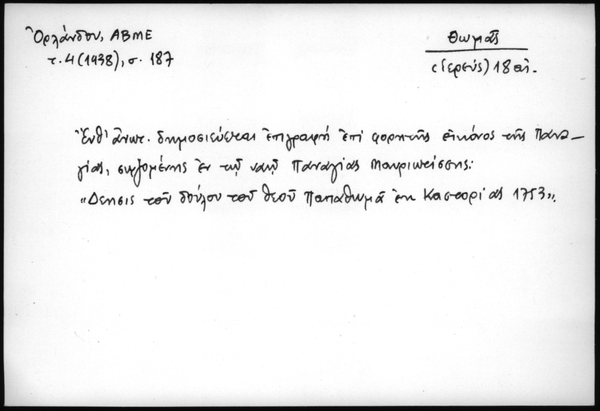 Ὀρλάνδου, ΑΒΜΕ
τ. 4 (1938), σ. 187
Θωμᾶς
(ἱερεύς) 18 αἰ.
Ἔνθ' ἄνωτ. δημοσιεύεται ἐπιγραφή ἐπί φορητῆς εἰκόνος τῆς Πανα-
γίας, σωζομένης ἐν τῷ ναῷ Παναγίας Μαυριωτίσσης:
«Δέησις τοῦ δούλου τοῦ θεοῦ Παπαθωμᾶ ἐκ Καστορίας 1753».